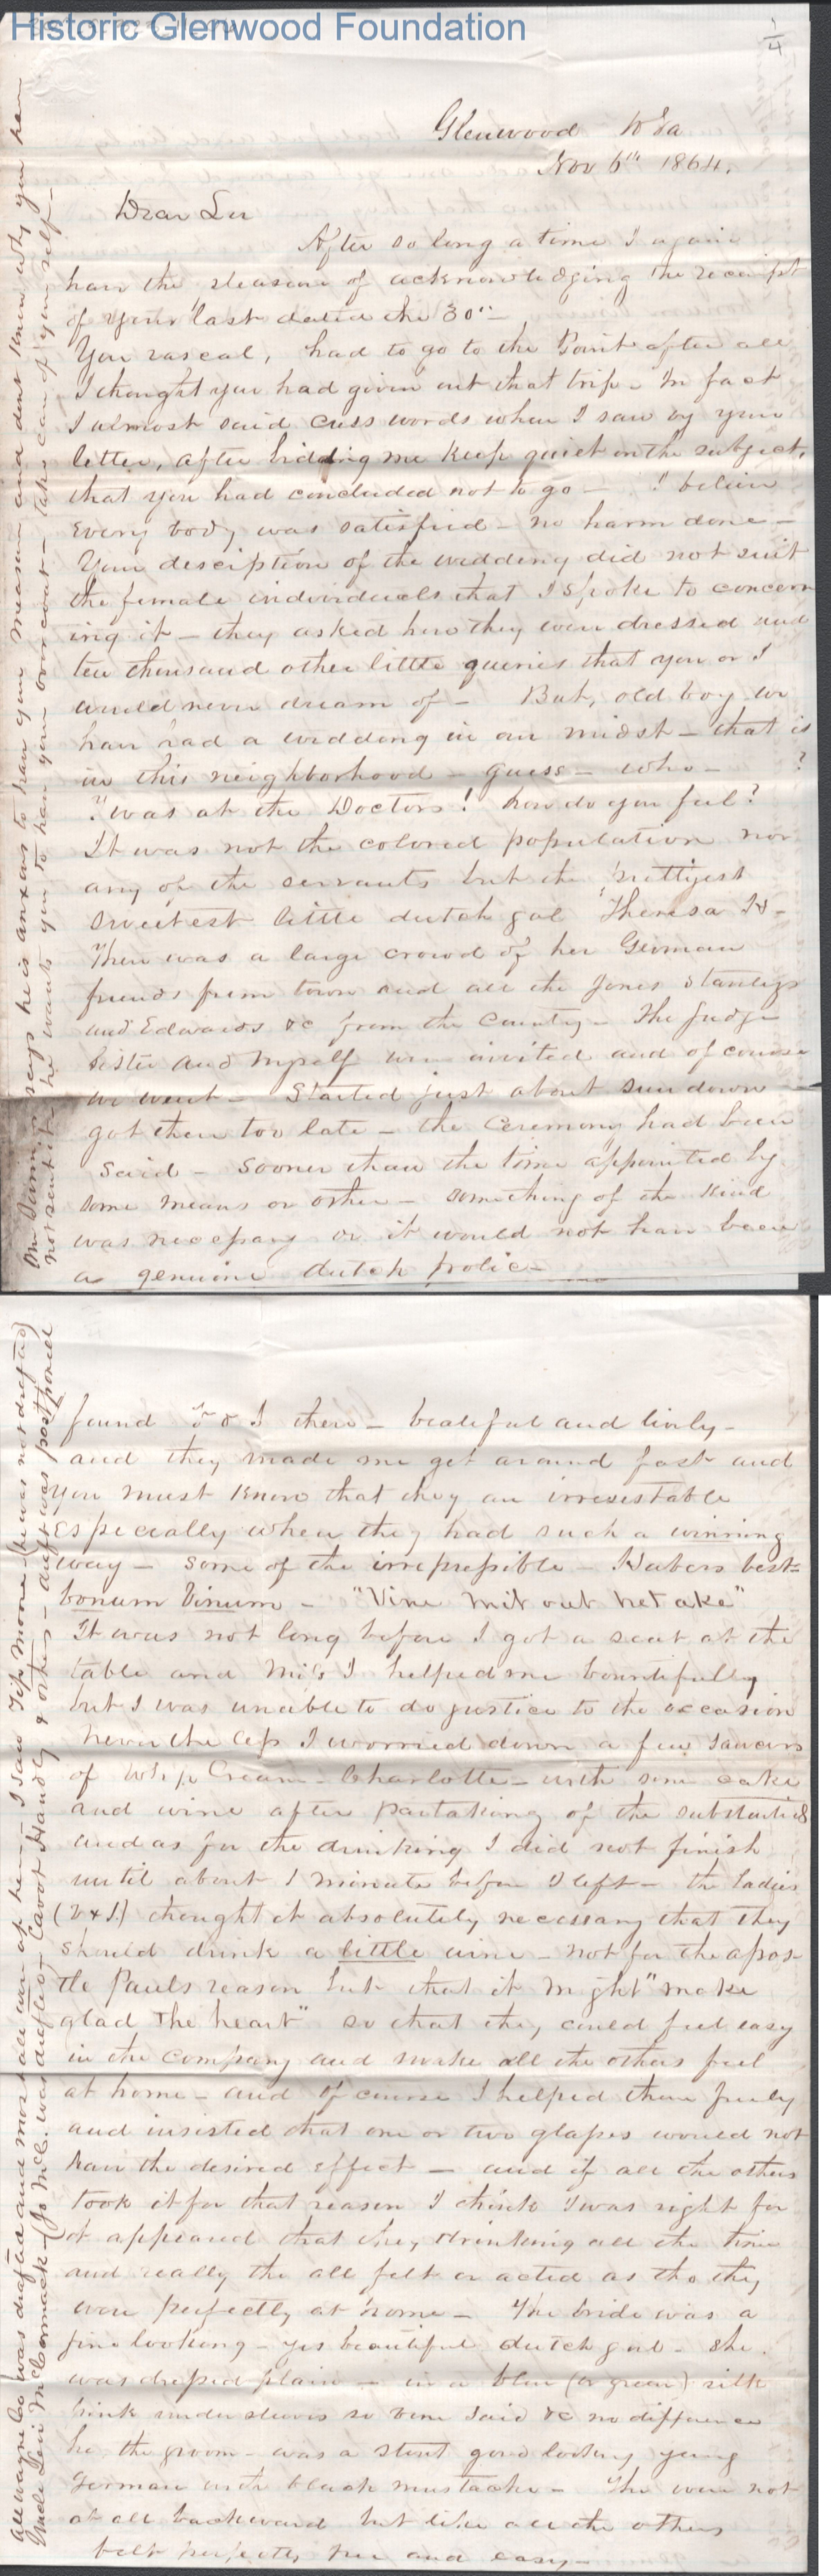 Historic Glenwood Foundation
1/4
Glenwood W Va
Nov 6th 1864.
Dear Sir
After so long a time I again
have the pleasure of acknowledging the receipt
of your last dated the 30th —
You rascal, had to go to the Point after all
I thought you had given out that trip — In fact
I almost said cuss words when I saw by your
letter, after bidding me keep quiet on the subject,
that you had concluded not to go — I believe
every body was satisfied — no harm done —
Your desciption of the wedding did not suit
the female individuals that I spoke to concern
ing it — they asked how they were dressed and
ten thousand other little queries that you or I
would never dream of — But, old boy we
have had a wedding in our midst — that is
in this neighborhood — guess — who — ?
'Twas at the Doctors! how do you feel?
It was not the colored population nor
any of the servants but the prettyest
sweetest little dutch gal Theresa H—
There was a large crowd of her German
friends from town and all the Jones Stanleys
and Edwards &c from the County — The Judge
Sister and myself were invited and of course
we went — Started just about sun down —
got there too late — the ceremony had been
said — sooner than the time appointed by
some means or other — something of the kind
was necessary or it would not have been
a genuine dutch frolic —
Mr says he is anxious to have your measure and dont know why you have
not sent it — he wants you to have your overcoat — take care of your self —
found & I there — beatiful and lively —
and they made me get around fast and
you must know that they are irresistable
especially when they had such a winning
way — some of the irrepressible — Hubers best —
bonum Vinum — "Vine mit out "
It was not long before I got a seat at the
table and Miss I helped me bountifully
but I was unable to do justice to the occasion
never the less I worried down a few saucers
of Whip Cream — Charlotte — with some cake
and wine after partaking of the substantials
and as for the drinking I did not finish
until about 1 minute before I left — the ladies
(V & I) thought it absolutely necessary that they
should drink a little wine — not for the apos-
tle Pauls reason but that it might "make
glad the heart" so that they could feel easy
in the company and make all the others feel
at home — and of course I helped them freely
and insisted that one or two glasses would not
have the desired effect — and if all the others
took it for that reason I think I was right for
it appeared that they drinking all the time
and really the all felt or acted as tho they
were perfectly at home — The bride was a
fine looking — yes beautiful dutch gal — She
was dressed plain — in a blue (or green) silk
pink under sleeves so said &c no difference
he, the groom — was a stout good looking young
German with black mustache — The were not
at all backward but like all the others
felt perfectly free and easy —
all Wayne Co was drafted and most all are up here — I saw Tip Moore — (he was not drafted)
Uncle Levi McCormack & Jo McC. was drafted — Cavot Handly & others — draft was postponed